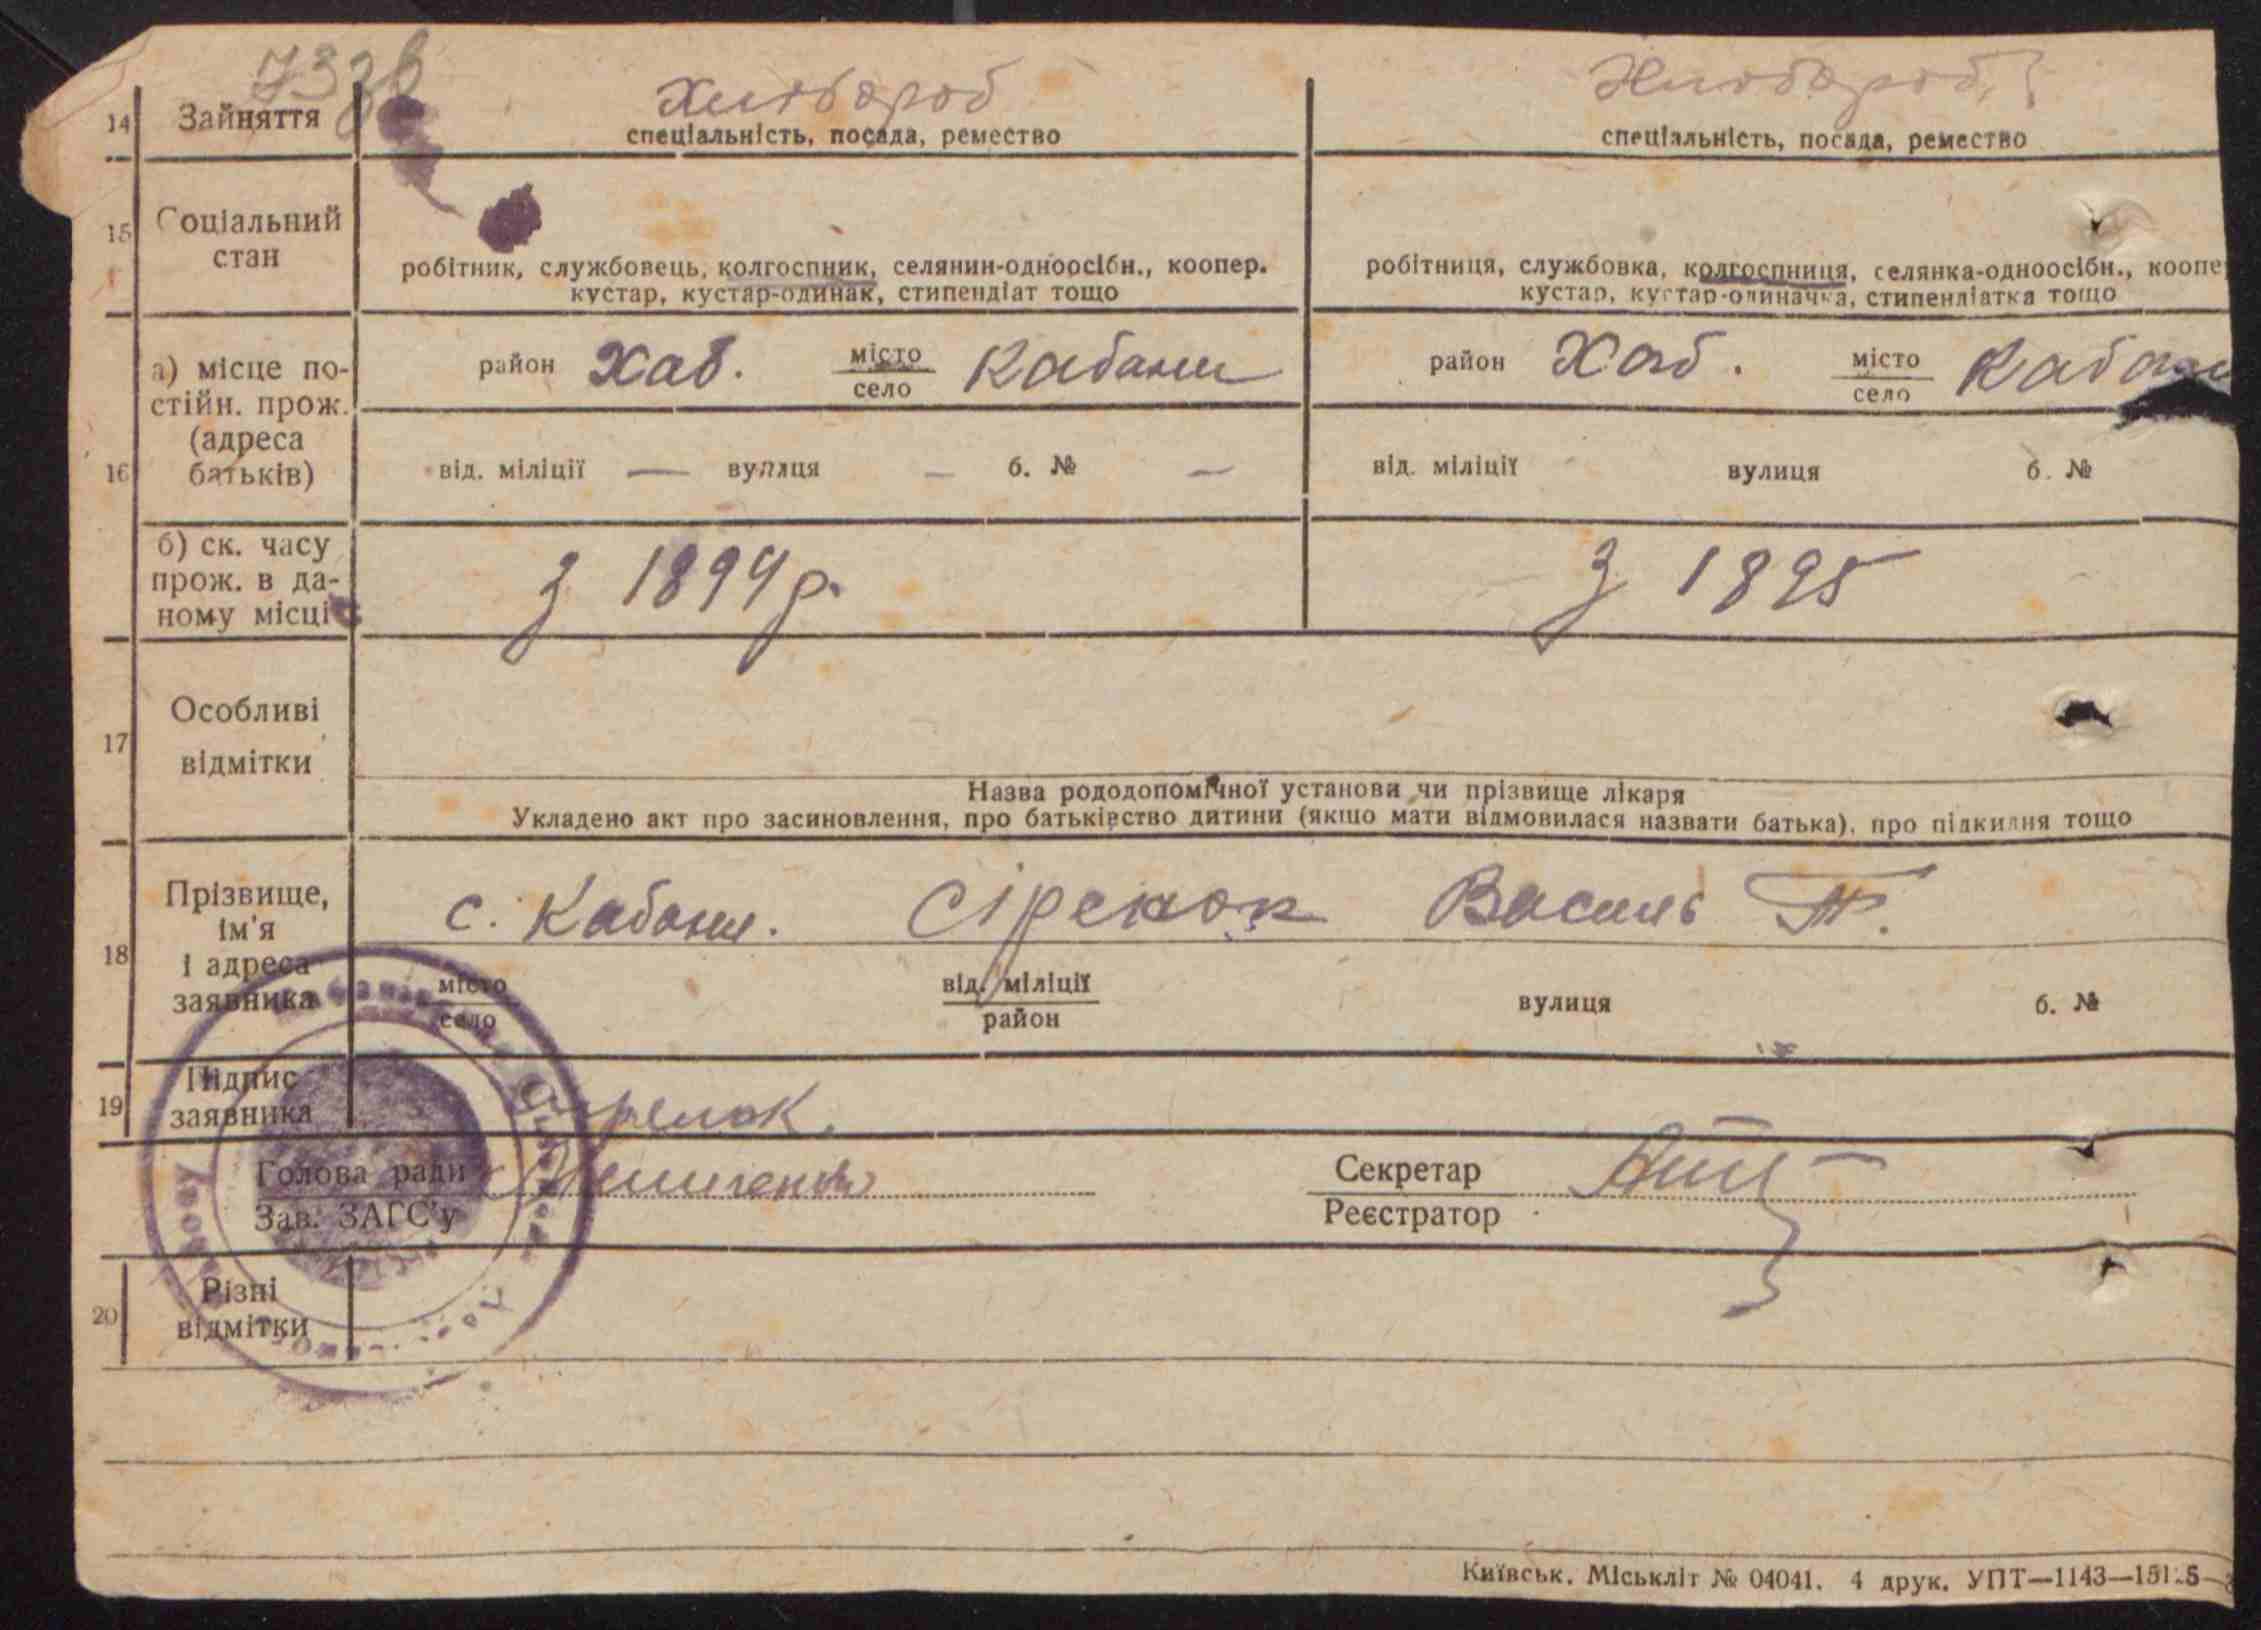 14 Зайняття Хлібороб Хлібороб
спеціальність, посада, ремество спеціальність, посада, ремество
15 Соціальний стан
робітник, службовець, колгоспник, селянин-одноосібн., коопер. робітниця, службовка, колгоспниця, селянка-одноосібн., коопе
кустар, кустар-одинак, стипендіат тощо кустар, кустар-одиначка, стипендіатка тощо
16 а) місце по-
стійн. прож.
(адреса
батьків)
район Хаб. місто Кабани район Хаб. місто Кабани
село село
від. міліції — вулиця — б. № — від. міліції вулиця б. №
б) ск. часу
прож. в да-
ному місці
з 1894 р. з 1895
17 Особливі
відмітки
Назва рододопомічної установи чи прізвище лікаря
Укладено акт про засиновлення, про батьківство дитини (якщо мати відмовилася назвати батька), про підкидня тощо
18 Прізвище,
ім'я
і адреса
заявника
с. Кабани. Сіренок Василь Т.
місто від. міліції вулиця б. №
село район
19 Підпис
заявника
Голова ради Секретар
Зав. ЗАГС'у Реєстратор
20 Різні
відмітки
Київськ. Міськліт № 04041. 4 друк. УПТ—1143—151